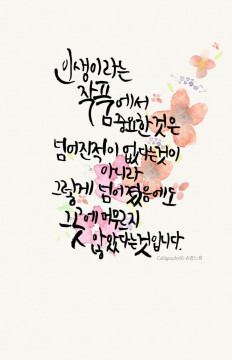 인생이라는
작품에서
중요한것은
넘어진적이 없다는것이
아니라
그렇게 넘어졌음에도
그곳에 머무르지
않았다는것입니다.